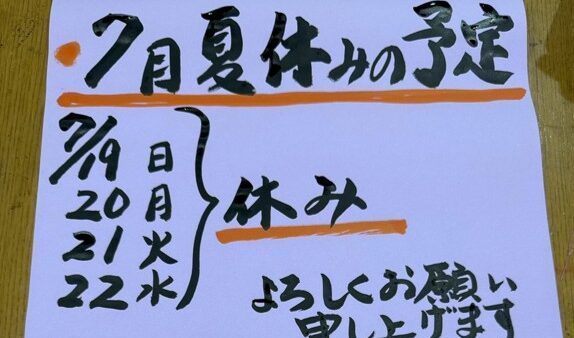 7月夏休みの予定
7/19 日
20 月
21 火
22 水
休み
よろしくお願い
申し上げます